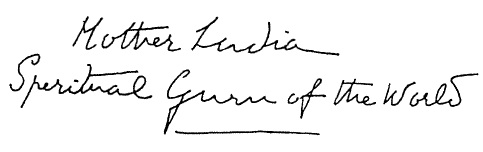 Mother India
Speritual Guru of the World